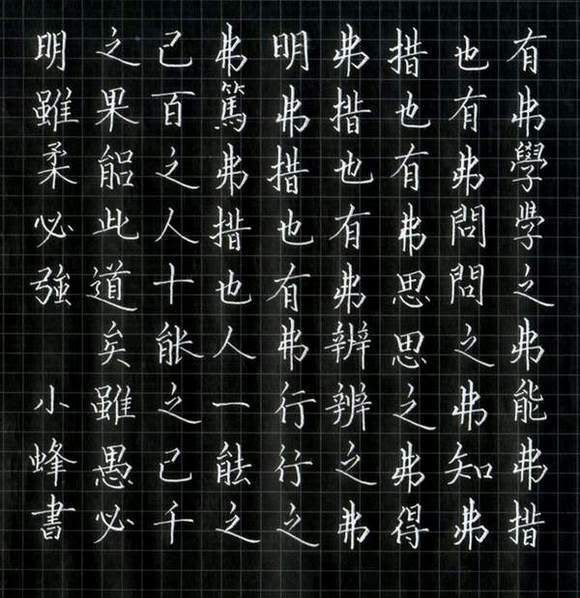 有弗學學之弗能弗措
也有弗問問之弗知弗
措也有弗思思之弗得
弗措也有弗辨辨之弗
明弗措也有弗行行之
弗篤弗措也人一能之
己百之人十能之己千
之果能此道矣雖愚必
明雖柔必強 小蜂書